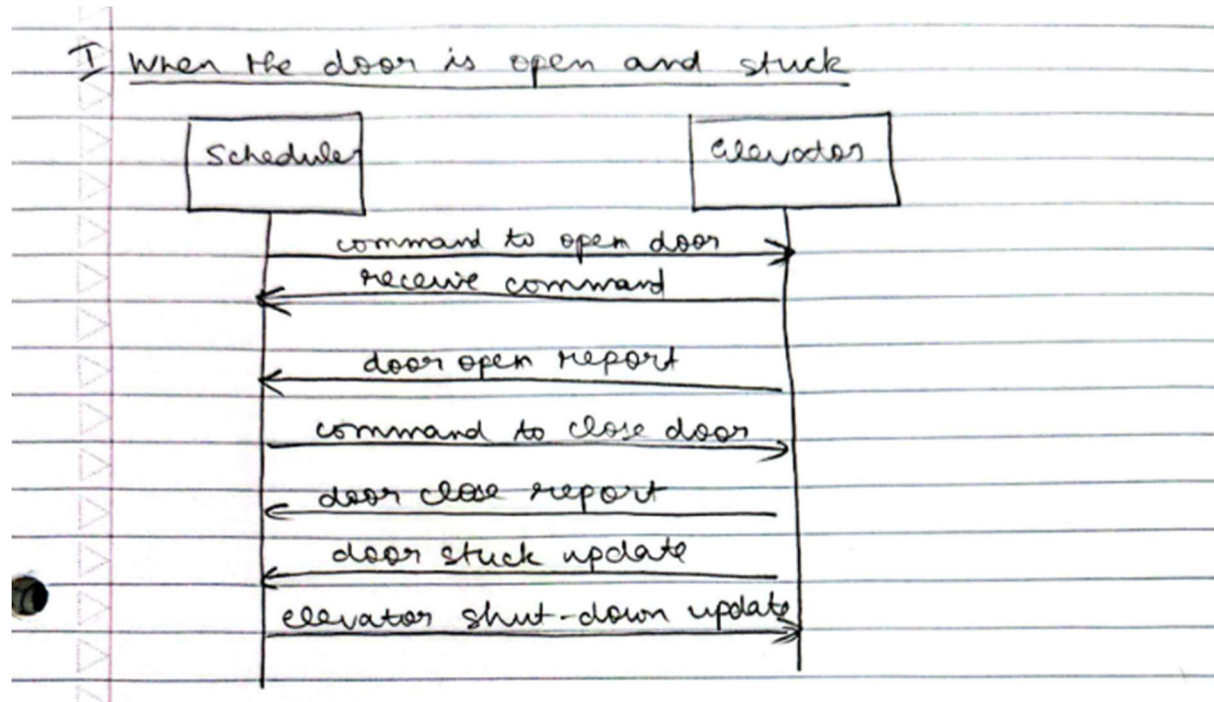 I When the door is open and stuck
Scheduler
Elevator
command to open door
receive command
door open report
command to close door
door close report
door stuck update
elevator shut-down update